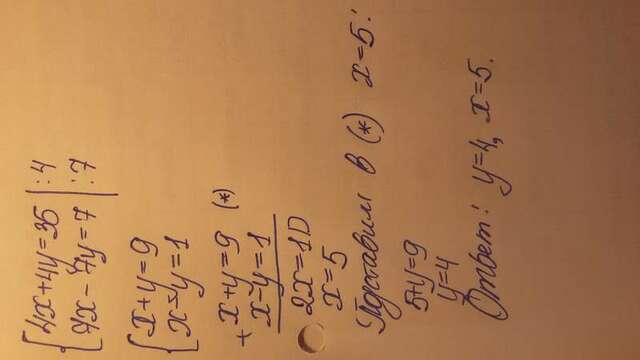 4x+4y=35 | :4
7x-7y=7 | :7
x+y=9
x-y=1
+ x+y=9 (*)
x-y=1
2x=10
x=5
Подставим в (*) x=5:
5+y=9
y=4
Ответ: y=4, x=5.